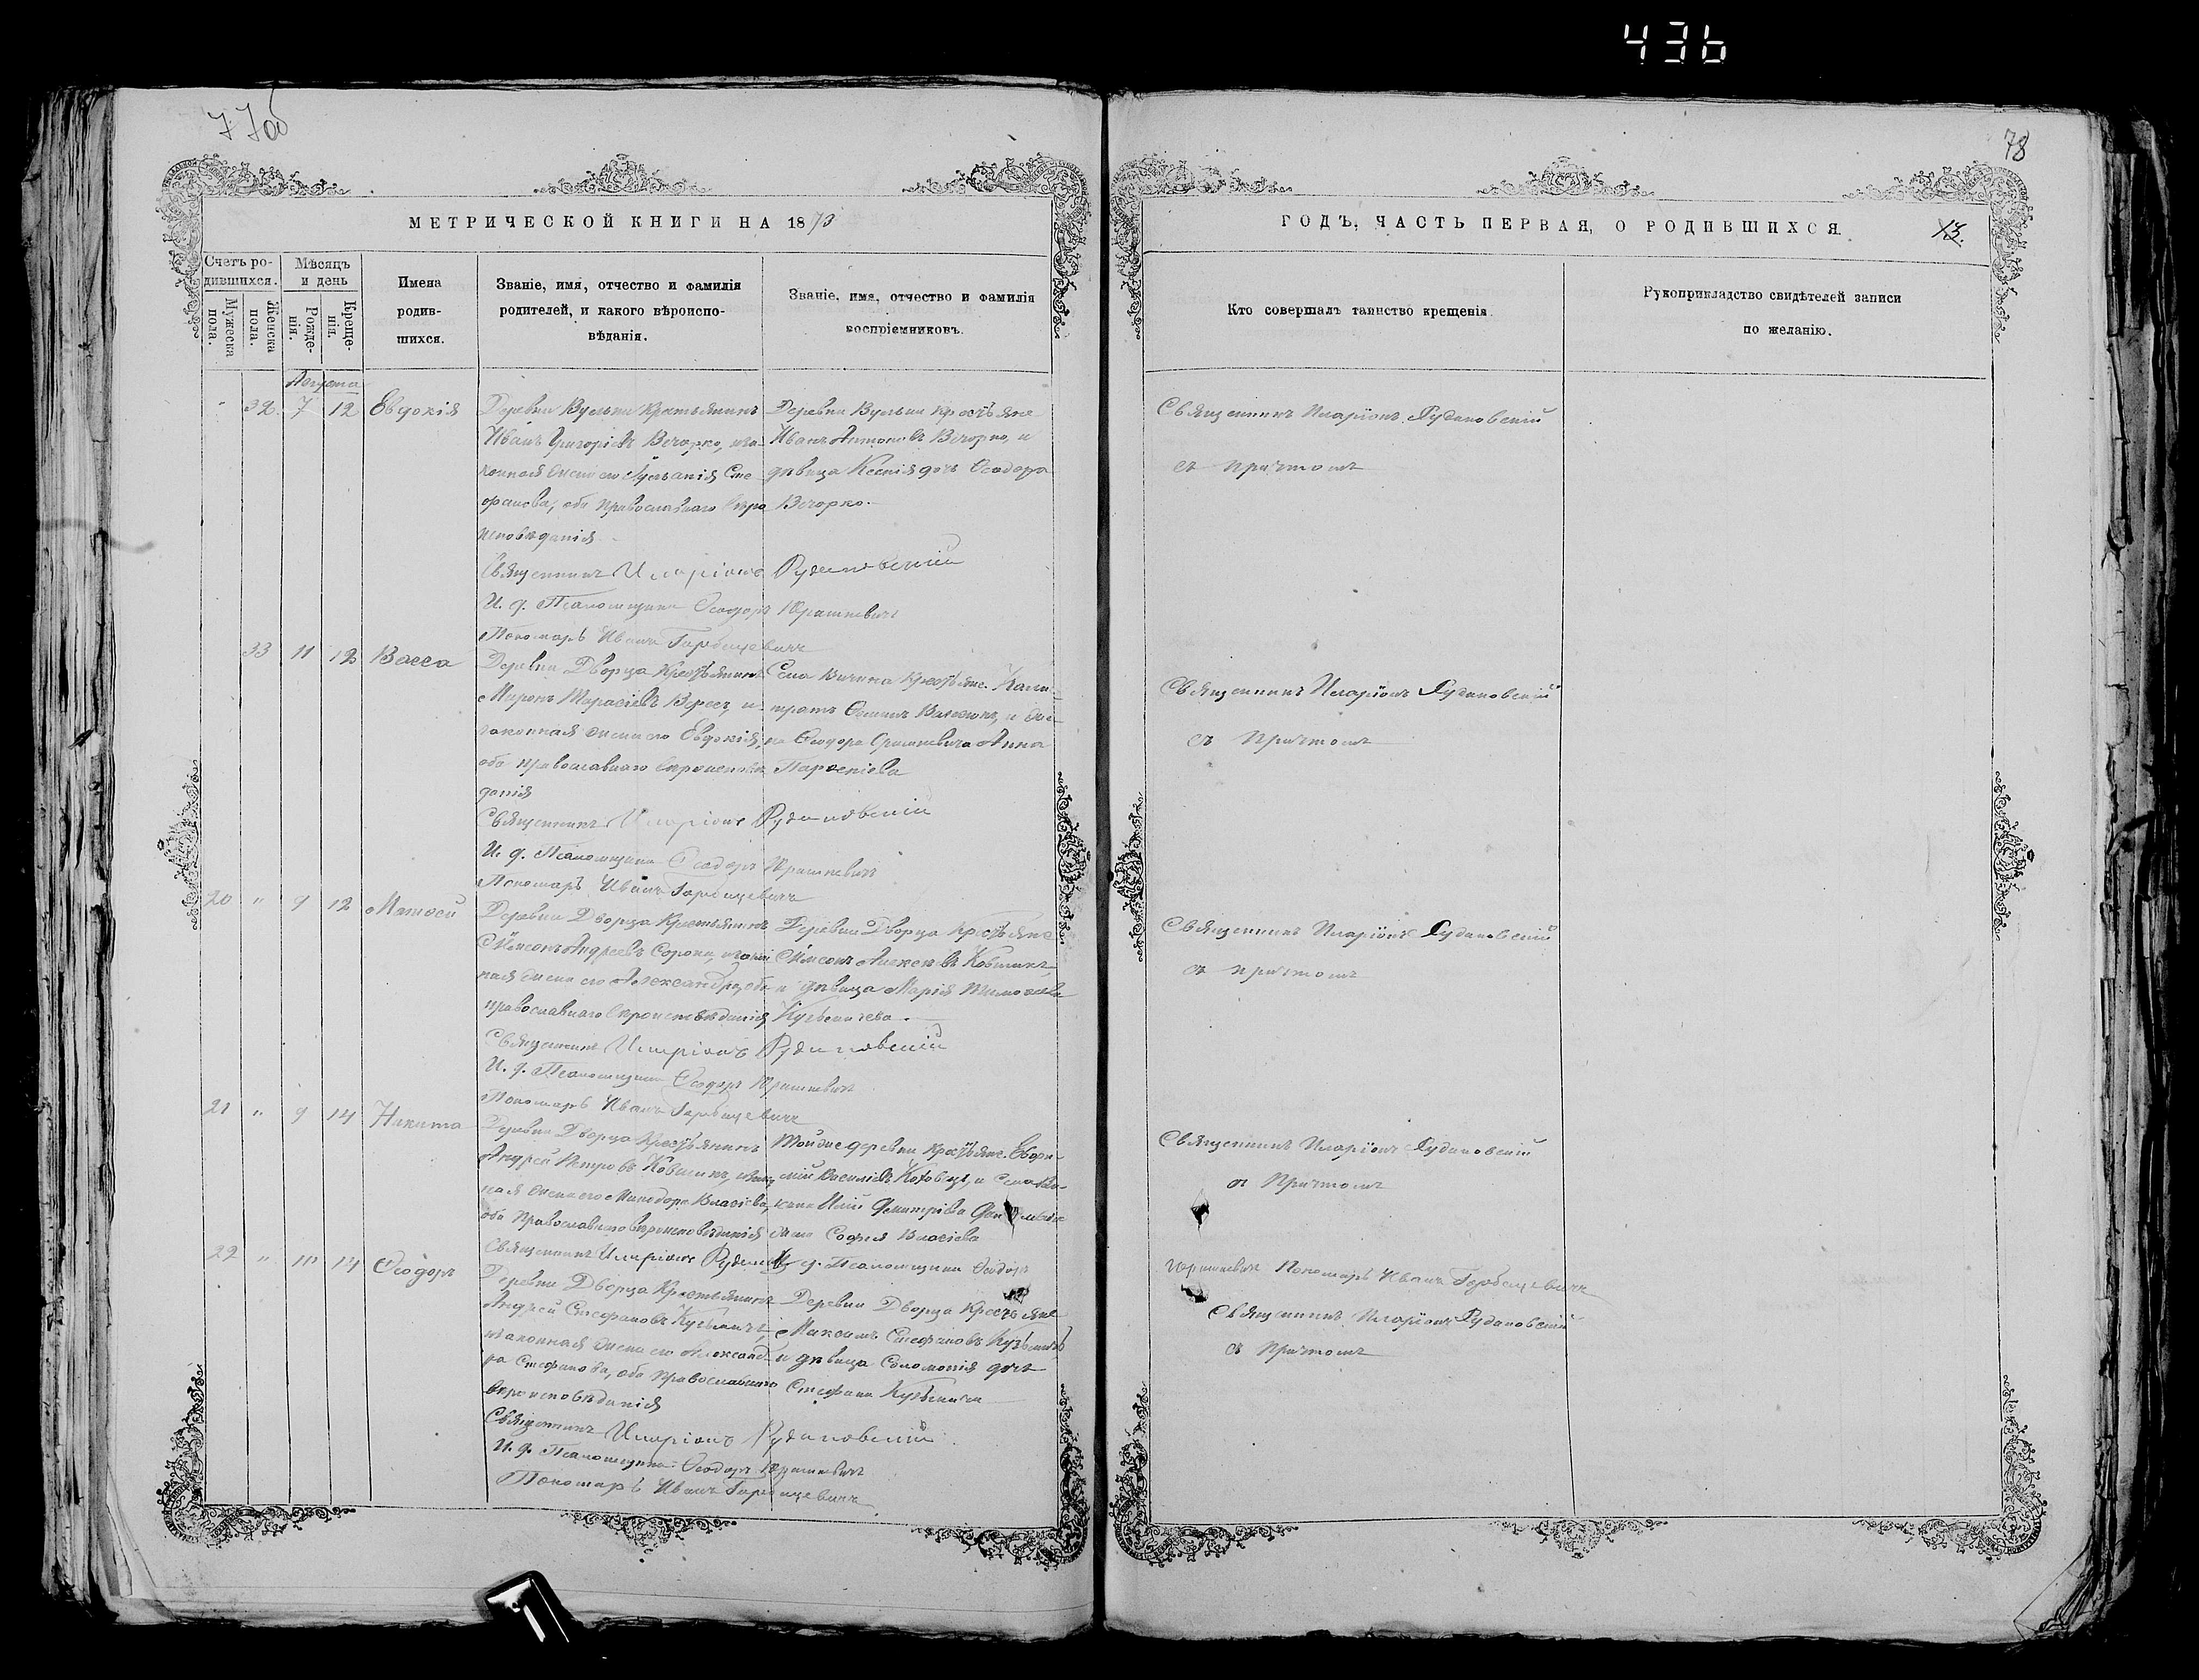 436
77об
78
МЕТРИЧЕСКОЙ КНИГИ НА 1873
ГОДЪ, ЧАСТЬ ПЕРВАЯ, О РОДИВШИХСЯ.
13.
Счетъ родившихся.
Мужеска пола.
Женска пола.
Мѣсяцъ и день
Рожденія.
Крещенія.
Имена родившихся.
Званіе, имя, отчество и фамилія родителей, и какого вѣроисповѣданія.
Званіе, имя, отчество и фамилія воспріемниковъ.
Кто совершалъ таинство крещенія
Рукоприкладство свидѣтелей записи по желанію.
Августа
32 7 12 Евдокія
Деревни Вульки Крестьянинъ
Иванъ Григоріевъ Вечорко, и за-
конная жена его Сте-
фанова, оба православнаго вѣро
исповѣданія
Деревни Вульки Крестьяне
Иванъ Антоновъ Вечорко, и
дѣвица Ксенія дочь Ѳеодора
Вечорко.
Священникъ Иларіонъ Рудановскій
съ причтомъ
Священникъ Иларіонъ Рудановскій
И. д. Псаломщика Ѳеодоръ Юрашкевичъ
Пономарь Иванъ Горбацевичъ
33 11 12 Васса
Деревни Дворца Крестьянинъ
Миронъ Тарасіевъ Верес, и
законная жена его Евдокія,
оба православнаго вѣроисповѣ
данія
Села Вичина Крестьяне Кали-
стратъ и же-
на Ѳеодора Юрашкевича Анна
Парѳеніева
Священникъ Иларіонъ Рудановскій
съ Причтомъ
Священникъ Иларіонъ Рудановскій
И. д. Псаломщика Ѳеодоръ Юрашкевичъ
Пономарь Иванъ Горбацевичъ
20 " 9 12 Матѳей
Деревни Дворца Крестьянинъ
Сѵмеонъ Андреевъ Сорока, и закон
ная жена его Александра, оба
православнаго вѣроисповѣданія
Деревни Дворца Крестьяне
Сѵмеонъ Алексѣевъ Ковшикъ,
и дѣвица Марія Тимоѳеева
Кузьмичева.
Священникъ Иларіонъ Рудановскій
съ причтомъ
Священникъ Иларіонъ Рудановскій
И. д. Псаломщика Ѳеодоръ Юрашкевичъ
Пономарь Иванъ Горбацевичъ
21 " 9 14 Никита
Деревни Дворца Крестьянинъ
Андрей Петровъ Ковшикъ, и закон
ная жена его Минодора Власіева,
оба Православнаго вѣроисповѣданія
Той же деревни Крестьяне Евѳи-
мій Василіевъ и Села
Иліи Димитріева
жена Софія Власіева
Священникъ Иларіонъ Рудановскій
съ Причтомъ
Священникъ Иларіонъ И. д. Псаломщика Ѳеодоръ
Юрашкевичъ Пономарь Иванъ Горбацевичъ
22 " 10 14 Ѳеодоръ
Деревни Дворца Крестьянинъ
Андрей Стефановъ Кузьмичъ,
и законная жена его Александ
ра Стефанова, оба православнаго
вѣроисповѣданія
Деревни Дворца Крестьяне
Максимъ Стефановъ Кузьмичъ
и дѣвица Соломонія дочь
Стефана Кузьмича
Священникъ Иларіонъ Рудановскій
съ Причтомъ
Священникъ Иларіонъ Рудановскій
И. д. Псаломщика Ѳеодоръ Юрашкевичъ
Пономарь Иванъ Горбацевичъ